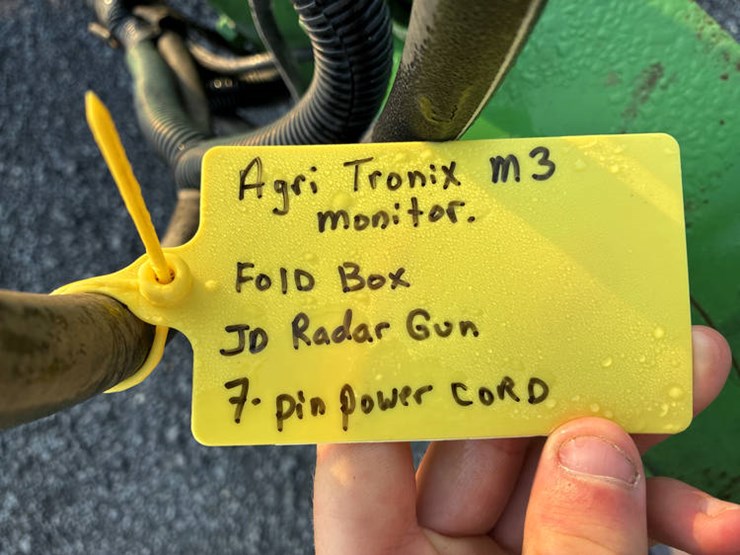 Agri Tronix m3
monitor.
Fold Box
JD Radar Gun
7-pin power CORD